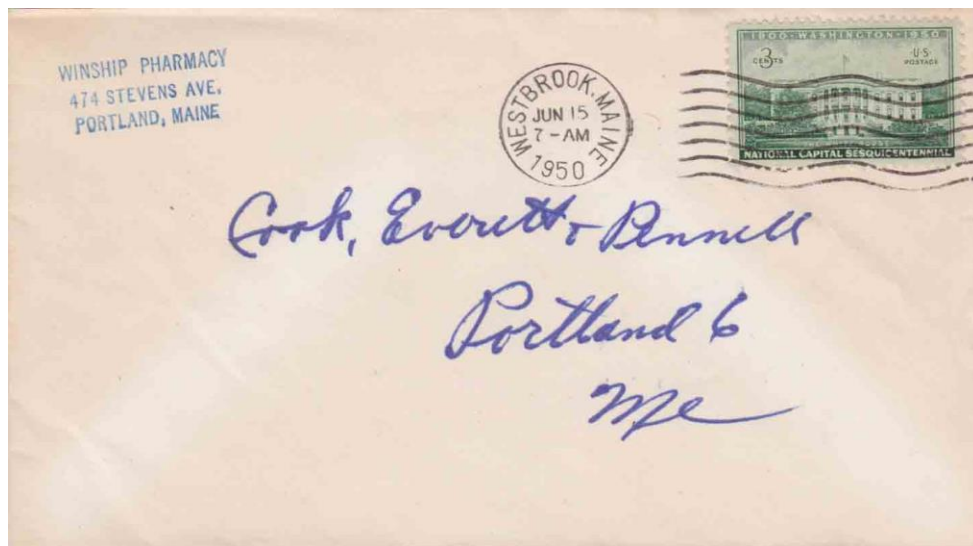 WINSHIP PHARMACY
474 STEVENS AVE.
PORTLAND, MAINE
WESTBROOK, MAINE
JUN 15
7-AM
1950
1800·WASHINGTON·1950
3
CENTS
U·S·
POSTAGE
NATIONAL CAPITAL SESQUICENTENNIAL
Cook, Everett & Pennell
Portland 6
Me